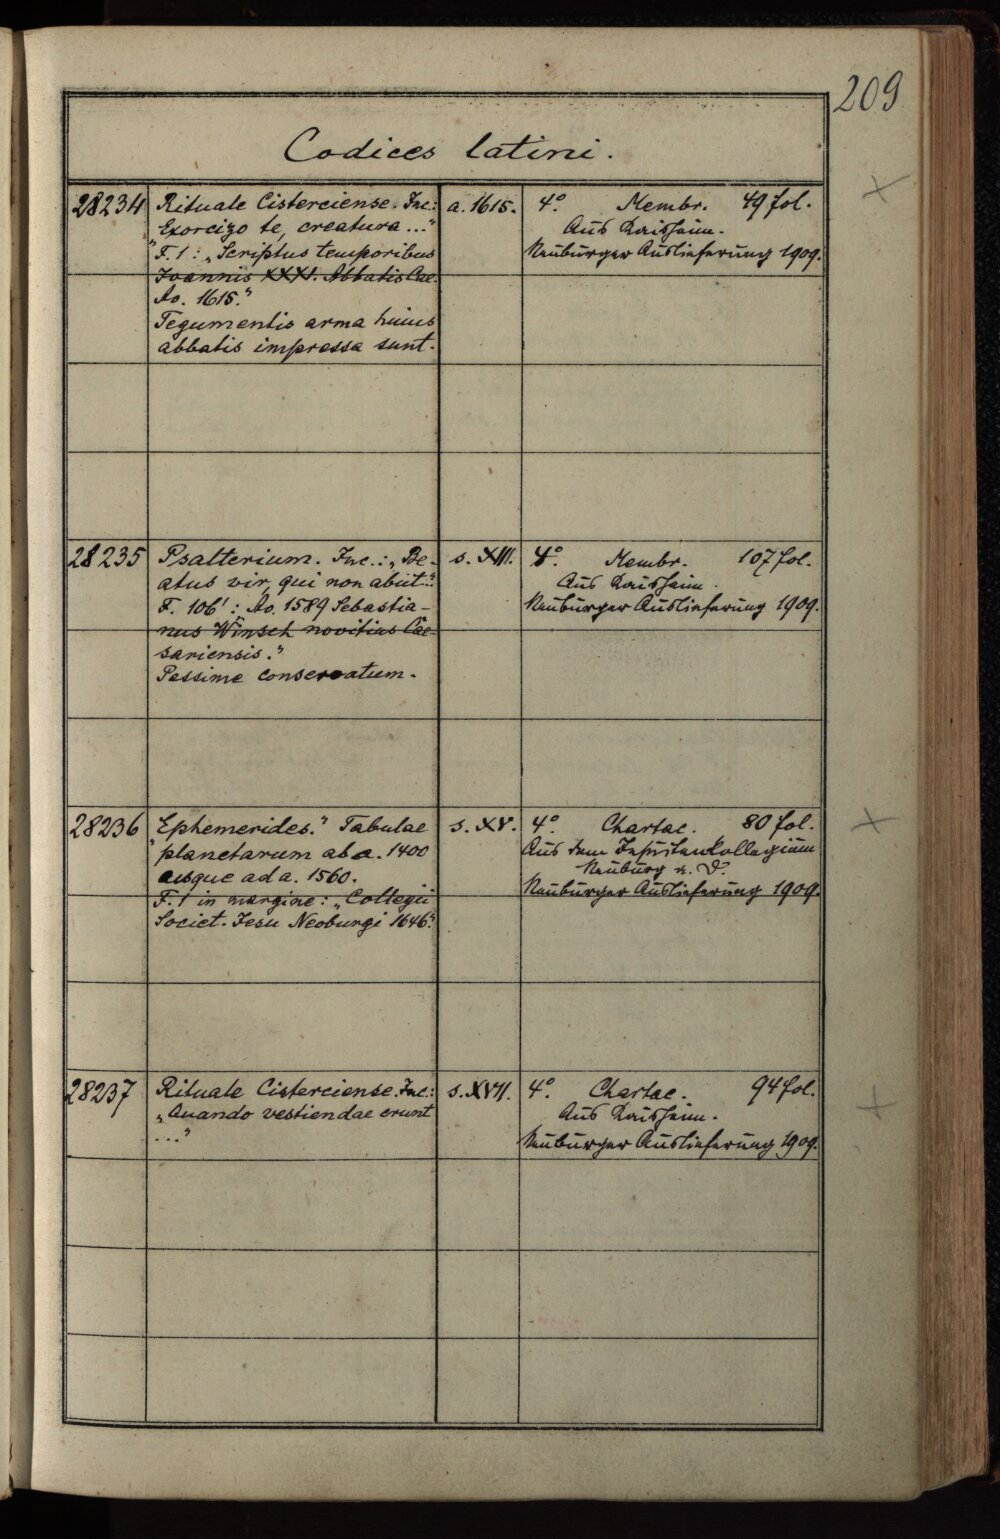 209
Codices latini.
28234 Rituale Cisterciense. Inc.: a. 1615. 4°. Membr. 49 fol.
„Exorcizo te, creatura..." Aus Kaisheim.
F. 1: „Scriptus temporibus Neuburger Auslieferung 1909.
Joannis XXXI. Abbatis Cae.
Ao. 1615."
Tegumentis arma huius
abbatis impressa sunt.
28235 Psalterium. Inc.: „Be- s. XIII. 4°. Membr. 107 fol.
atus vir, qui non abiit..." Aus Kaisheim.
F. 106': Ao. 1589 Sebastia- Neuburger Auslieferung 1909.
nus Winsch novitius Cae-
sariensis."
Pessime conservatum.
28236 „Ephemerides." Tabulae s. XV. 4°. Chartac. 80 fol.
planetarum ab a. 1400 Aus dem Jesuitenkollegium
usque ad a. 1560. Neuburg a. D.
F. 1 in margine: „Collegii Neuburger Auslieferung 1909.
Societ. Jesu Neoburgi 1646."
28237 Rituale Cisterciense. Inc.: s. XVII. 4°. Chartac. 94 fol.
„Quando vestiendae erunt Aus Kaisheim.
..." Neuburger Auslieferung 1909.